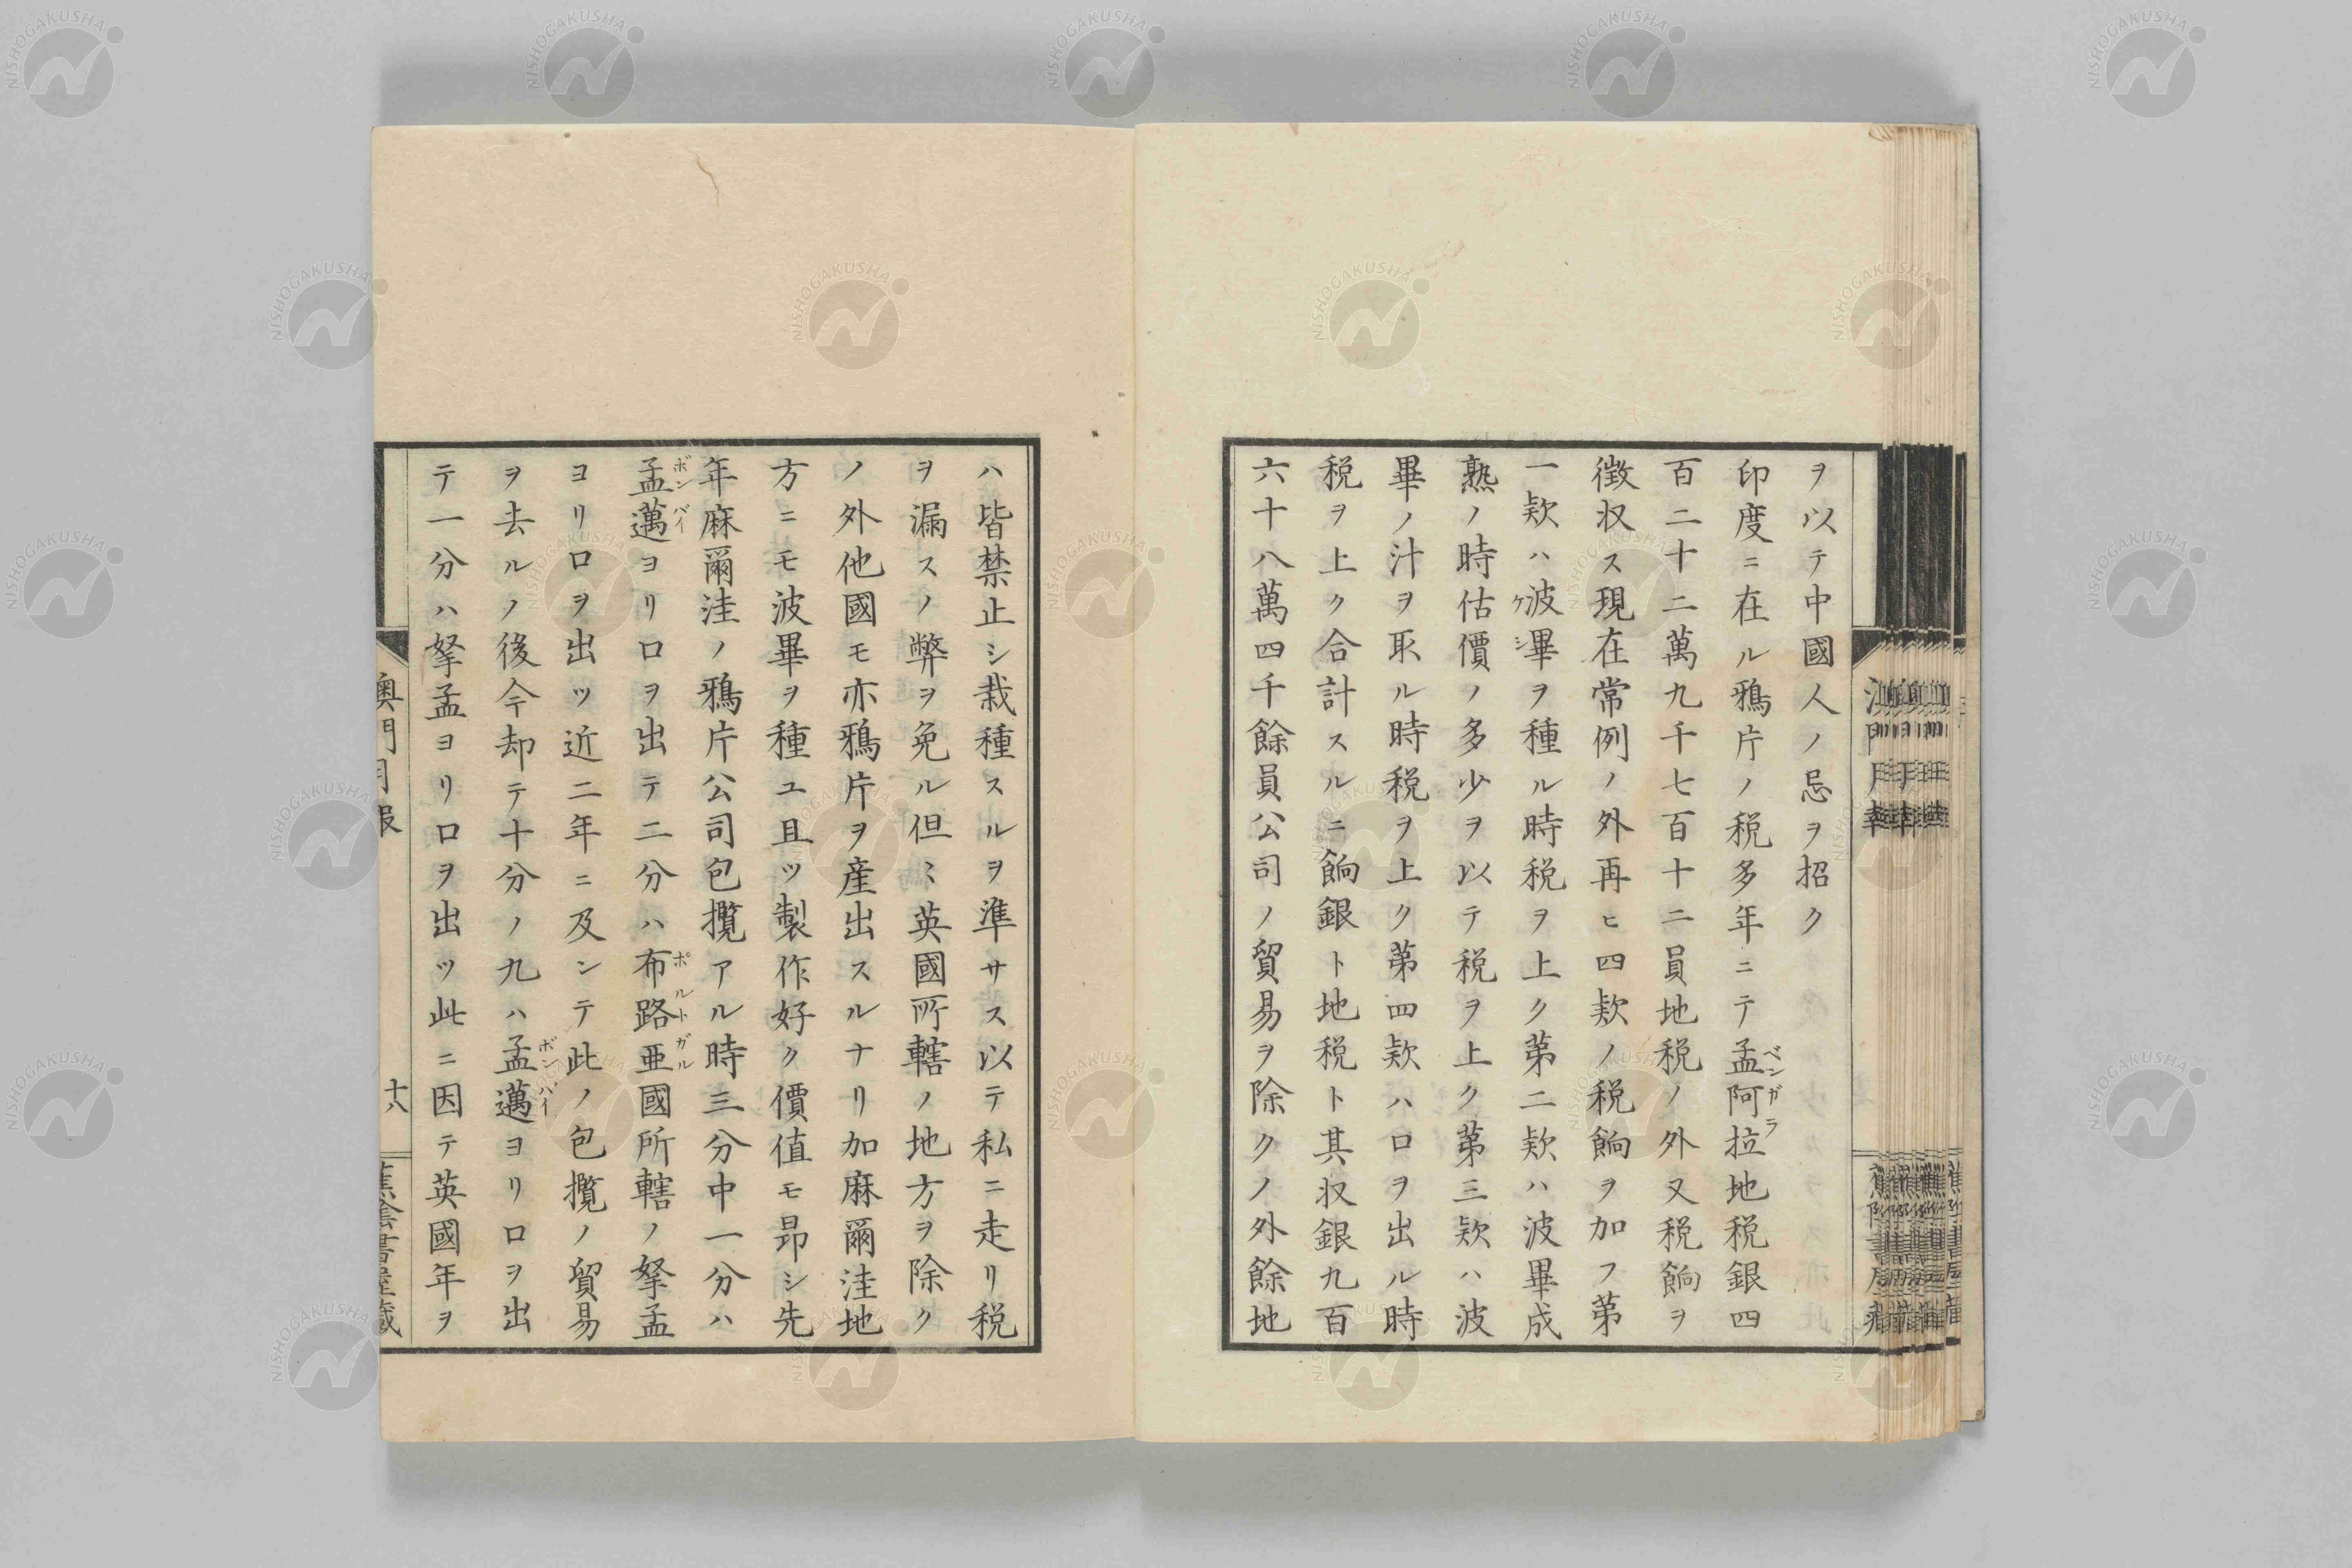 ヲ以テ中國人ノ忌ヲ招ク
印度ニ在ル鴉片ノ税多年ニテ孟阿拉地税銀四
ベンガラ
百二十二萬九千七百十二員地税ノ外又税餉ヲ
徴収ス現在常例ノ外再ヒ四欵ノ税餉ヲ加フ第
一欵ハ波畢ヲ種ル時税ヲ上ク第二欵ハ波畢成
ケシ
熟ノ時估價ノ多少ヲ以テ税ヲ上ク第三欵ハ波
畢ノ汁ヲ取ル時税ヲ上ク第四欵ハ口ヲ出ル時
税ヲ上ク合計スルニ餉銀ト地税ト其収銀九百
六十八萬四千餘員公司ノ貿易ヲ除クノ外餘地
ハ皆禁止シ栽種スルヲ準サス以テ私ニ走リ税
ヲ漏スノ弊ヲ免ル但〻英國所轄ノ地方ヲ除ク
ノ外他國モ亦鴉片ヲ産出スルナリ加麻爾洼地
方ニモ波畢ヲ種ユ且ツ製作好ク價値モ昂シ先
年麻爾洼ノ鴉片公司包攬アル時三分中一分ハ
孟邁ヨリ口ヲ出テ二分ハ布路亜國所轄ノ孥孟
ボンバイ
ポルトガル
ヨリ口ヲ出ツ近二年ニ及ンテ此ノ包攬ノ貿易
ヲ去ルノ後今却テ十分ノ九ハ孟邁ヨリ口ヲ出
ボンバイ
テ一分ハ孥孟ヨリ口ヲ出ツ此ニ因テ英國年ヲ
澳門月報
十八
蕉陰書屋藏
NISHOGAKUSHA